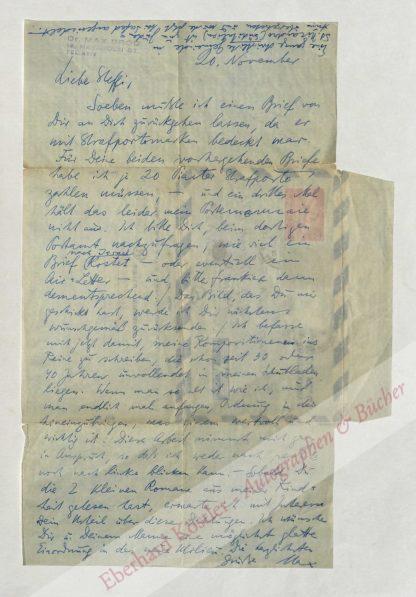 Dr. MAX BROD
16, HAYARDEN ST.
TEL AVIV
20. November
Liebe Steffi,
Soeben mußte ich einen Brief von
Dir an Dich zurückgehen lassen, da er
mit Strafportomarken bedeckt war.
Für Deine beiden vorhergehenden Briefe
habe ich je 20 Piaster Strafporto
zahlen müssen, – und ein drittes Mal
hält das leider mein Portemonnaie
nicht aus. Ich bitte Dich, beim dortigen
Postamt nachzufragen, wie viel ein
nach Israel
Brief kostet – oder eventuell ein
Air-Letter – und bitte frankiere dann
dementsprechend! Das Bild, das Du mir
geschickt hast, werde ich Dir nächstens
wunschgemäß zurücksenden! Ich befasse
mich jetzt damit, meine Kompositionen ins
Reine zu schreiben, die schon seit 30 oder
40 Jahren unvollendet in meinen Schubladen
liegen. Wenn man so alt ist wie ich, muß
man endlich mal anfangen Ordnung in das
hineinzubringen, was einem wertvoll und
wichtig ist. Diese Arbeit nimmt mich so
in Anspruch, so daß ich weder nach rechts
noch nach links blicken kann. – Sobald Du
die 2 kleinen Romane aus meiner Kind-
heit gelesen hast, erwarte ich mit Interesse
Dein Urteil über diese Dichtungen. Ich wünsche
Dir u. Deinem Manne eine möglichst glatte
Einordnung in das neue Milieu. Die herzlichsten
Grüße Max
Eberhard Köstler - Autographen & Bücher